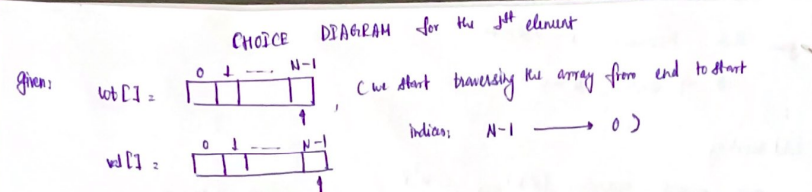 CHOICE DIAGRAM for the 1st element
Given:
0 1 ---- N-1
wt [] = , ( we start traversing the array from end to start
indices: N-1 → 0 )
0 1 ---- N-1
val [] =